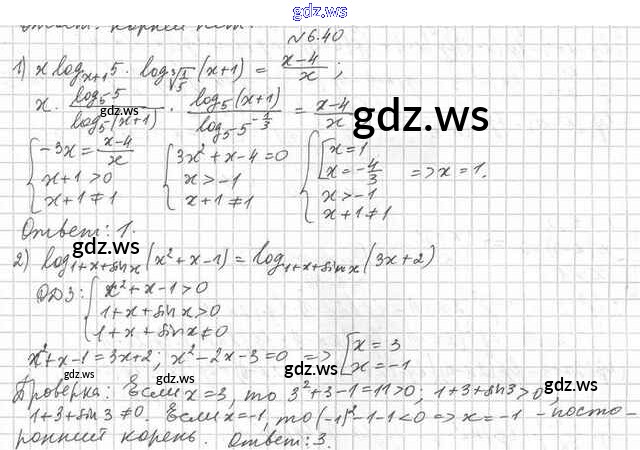 gdz.ws
N6.40
1) x log_{x+1} 5 · log_{∛(1/5)} (x+1) = (x-4)/x ;
x · (log_5 5)/(log_5 (x+1)) · (log_5 (x+1))/(log_5 5^{-1/3}) = (x-4)/x
gdz.ws
gdz.ws
{ -3x = (x-4)/x { 3x²+x-4=0 { [ x=1
x+1>0 x>-1 x=-4/3 => x=1.
x+1≠1 x+1≠1 x>-1
x+1≠1
Ответ: 1.
gdz.ws
gdz.ws
2) log_{1+x+sinx} (x²+x-1) = log_{1+x+sinx} (3x+2)
ОДЗ: { x²+x-1>0
1+x+sinx>0
1+x+sinx≠0
x²+x-1=3x+2; x²-2x-3=0 => [ x=3
x=-1
gdz.ws
gdz.ws
Проверка: Если x=3, то 3²+3-1=11>0; 1+3+sin3>0,
1+3+sin3≠0. Если x=-1, то (-1)²-1-1<0 => x=-1 - посто-
ронний корень. Ответ: 3.
gdz.ws
gdz.ws
gdz.ws